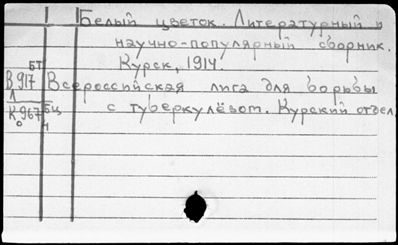 Белый цветок. Литературный и
научно-популярный сборник.
Курск, 1914.
БТ
В917 Всероссийская лига для борьбы
Л
с туберкулёзом. Курский отдел.
К967 БЦ
о ч